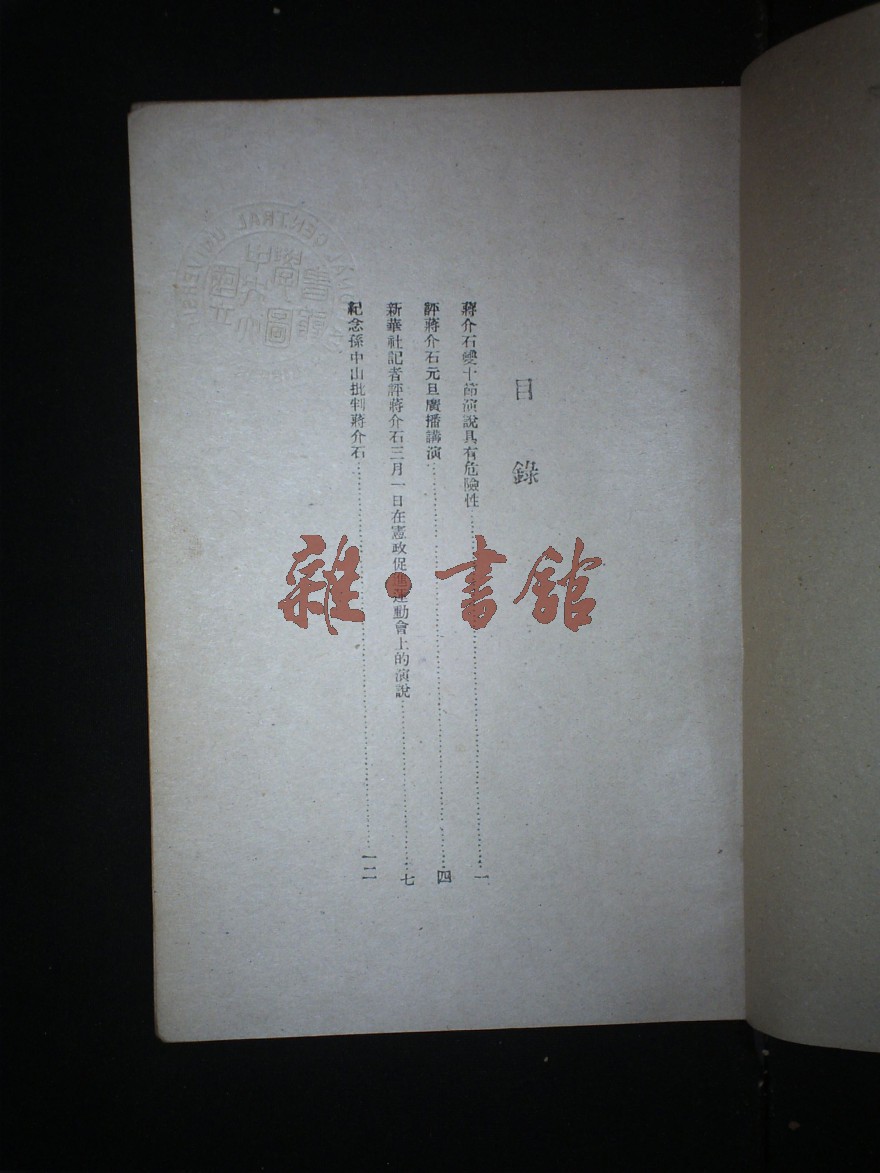 目錄
蔣介石雙十節演說具有危險性……一
評蔣介石元旦廣播講演……四
新華社記者評蔣介石三月一日在憲政促進運動會上的演說……七
紀念孫中山批判蔣介石……一二
雜•書館
CENTRAL